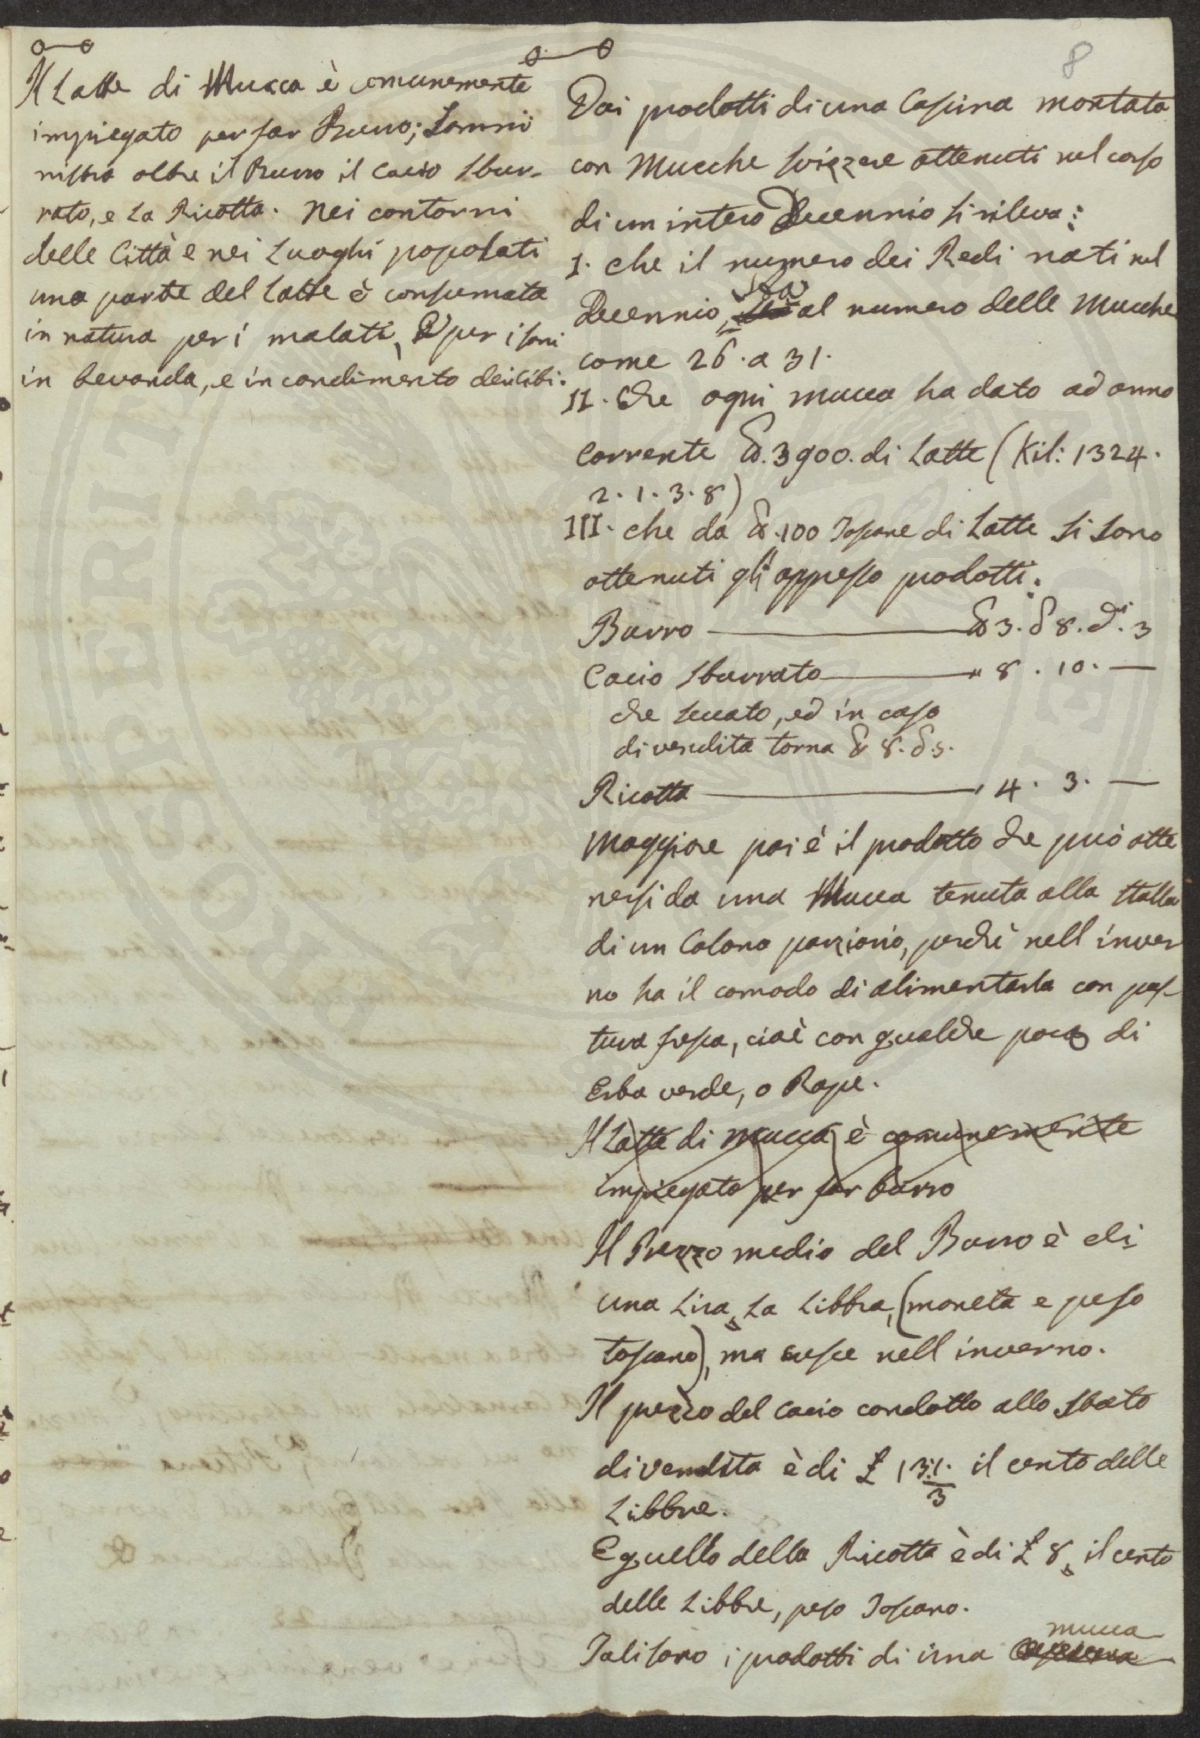 Il Latte di Mucca è comunemente
impiegato per far Burro; Sommi
nistra oltre il Burro il Cacio sbur-
rato, e la Ricotta. Nei contorni
delle Città e nei Luoghi popolati
una parte del Latte è consumata
in natura per i malati, e per i sani
in bevanda, e in condimento dei cibi.
8
Dai prodotti di una Cascina montata
con Mucche svizzere ottenuti nel corso
di un intero Decennio si rileva:
I. che il numero dei Redi nati nel
Decennio, sta al numero delle Mucche
come 26. a 31.
II. Che ogni mucca ha dato ad anno
corrente ℔. 3900. di Latte (Kil: 1324.
2. 1. 3. 8)
III. che da ℔. 100 Toscane di Latte si sono
ottenuti gli appresso prodotti.
Burro ——— ℔ 3. δ 8. d. 3
Cacio sburrato ——— " 8. 10. —
che seccato, ed in caso
di vendita torna ℔ 8. δ 5.
Ricotta ——— " 4. 3. —
Maggiore poi è il prodotto che può otte
nersi da una Mucca tenuta alla stalla
di un Colono parziario, perchè nell'inver
no ha il comodo di alimentarla con pas-
tura fresca, cioè con qualche poco di
Erba verde, o Rape.
Il Latte di mucca è comunemente
impiegato per far burro
Il Prezzo medio del Burro è di
una Lira, La Libbra, (moneta e peso
toscano), ma cresce nell'inverno.
Il prezzo del cacio condotto allo stato
di vendita è di £ 13.1/3 il cento delle
Libbre.
E quello della Ricotta è di £ 8, il cento
delle Libbre, peso Toscano.
mucca
Tali sono i prodotti di una